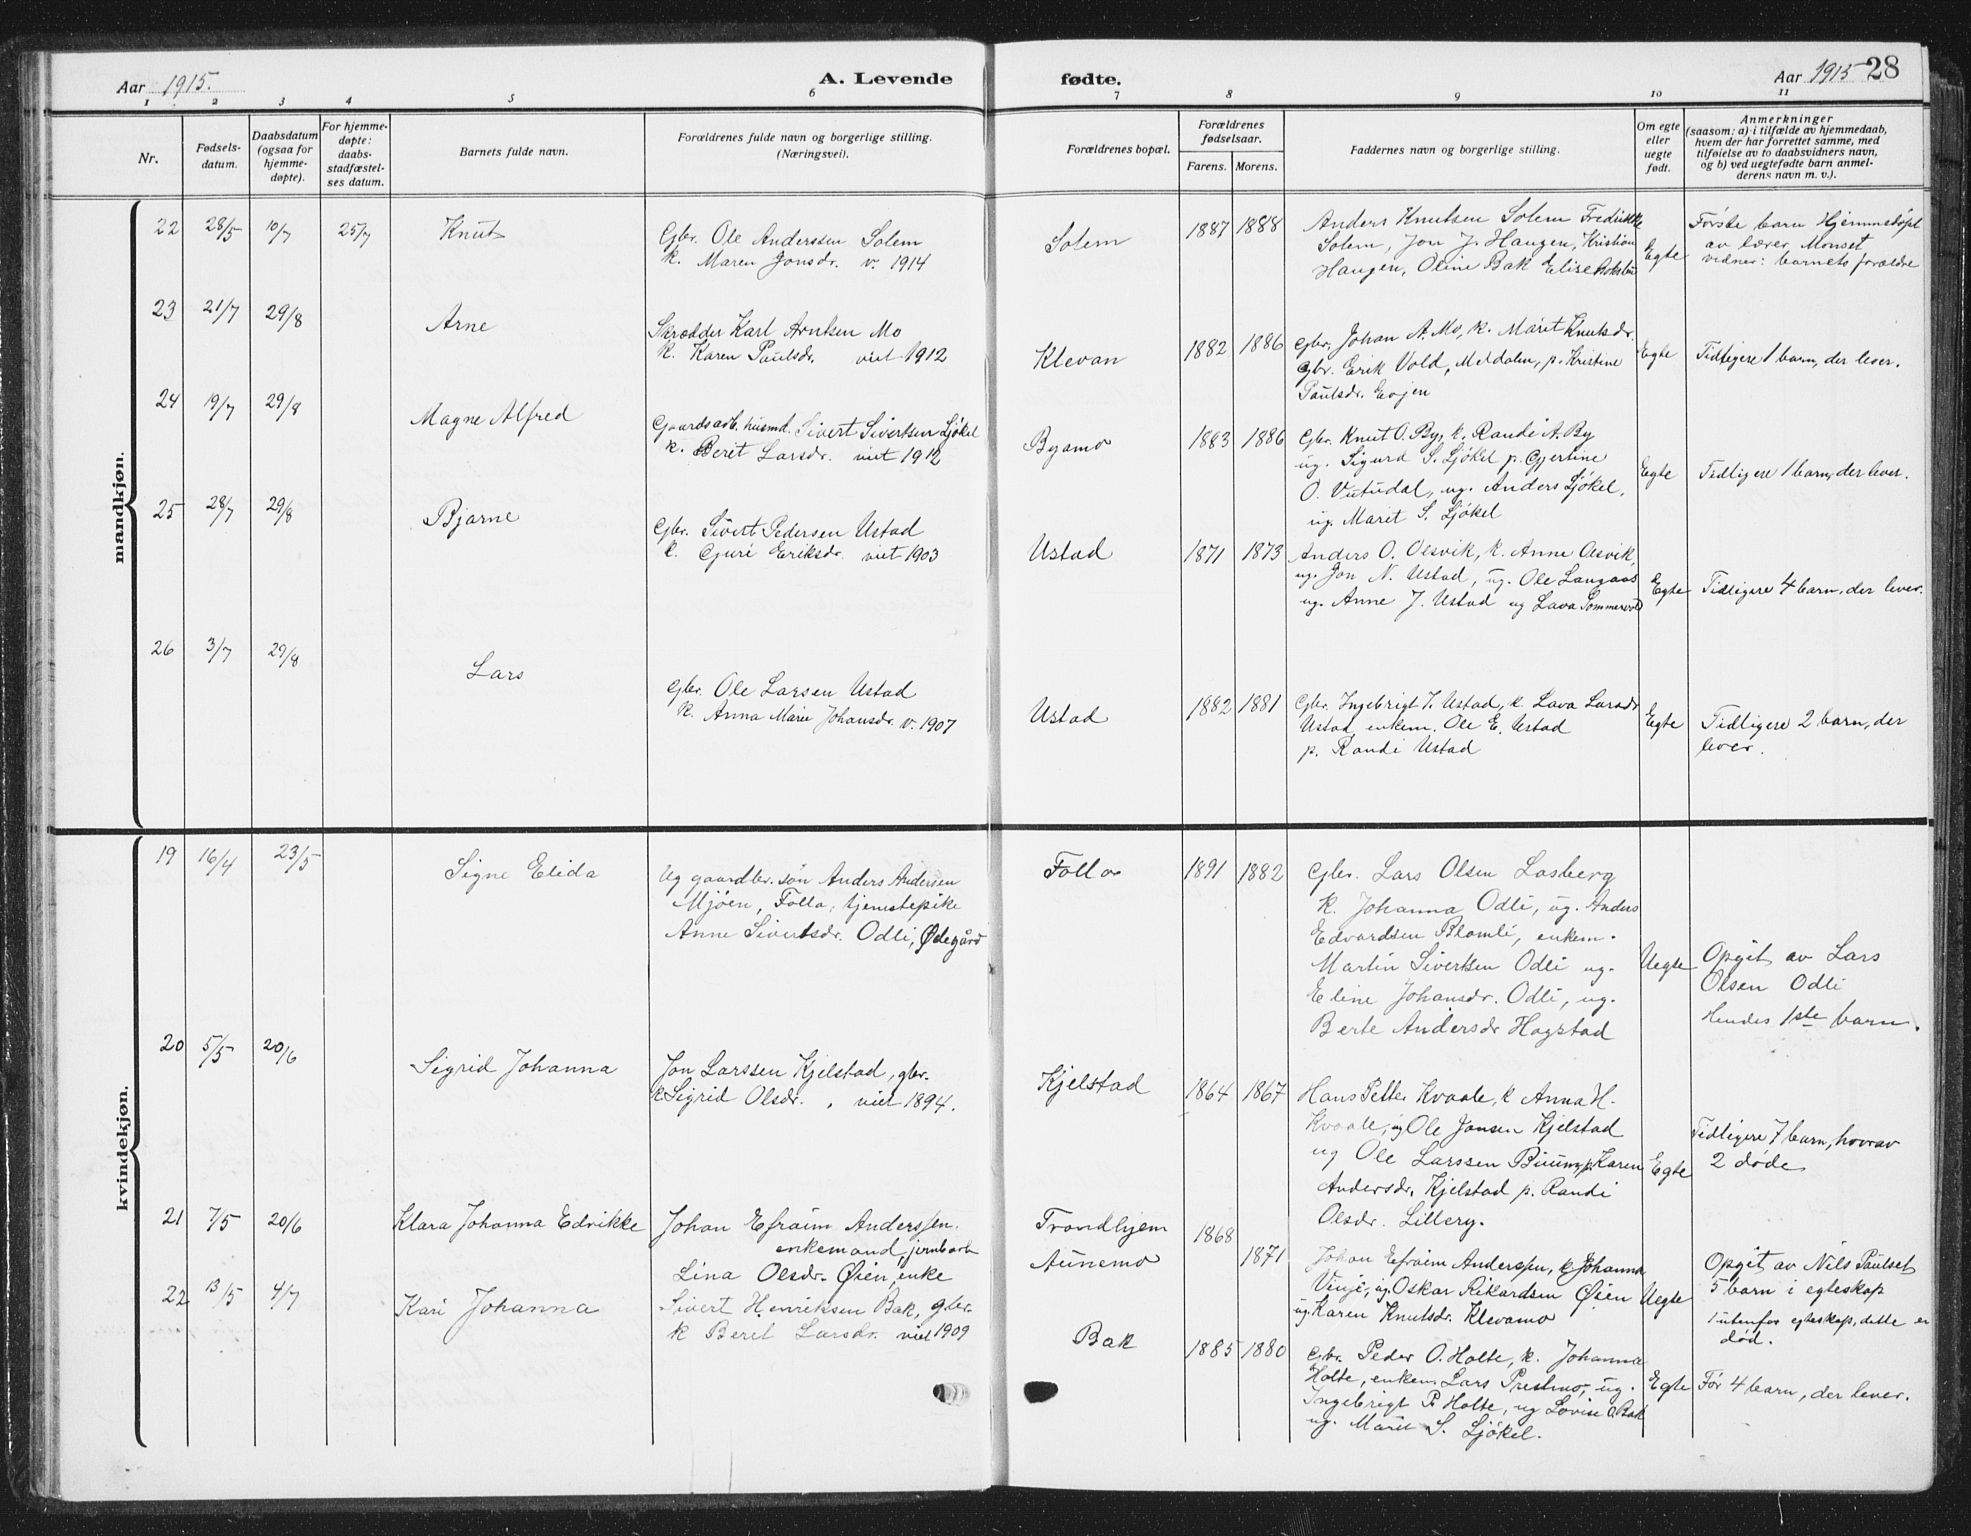 Aar 1915. A. Levende fødte. Aar 1915 28
1 2 3 4 5 6 7 8 9 10 11
Nr.
Fødsels-
datum.
Daabsdatum
(ogsaa for
hjemme-
døpte).
For hjemme-
døpte:
daabs-
stadfæstel-
ses datum.
Barnets fulde navn.
Forældrenes fulde navn og borgerlige stilling.
(Næringsvei).
Forældrenes bopæl.
Forældrenes
fødselsaar.
Farens. Morens.
Faddernes navn og borgerlige stilling.
Om egte
eller
uegte
født.
Anmerkninger
(saasom: a) i tilfælde av hjemmedaab,
hvem der har forrettet samme, med
tilføielse av to daabsvidners navn,
og b) ved uegtefødte barn anmel-
derens navn m. v.).
mandkjøn.
22 28/5 10/7 25/7 Knut
Gbr. Ole Anderssen Solem
k. Maren Jonsdr. v. 1914
Solem 1887 1888
Anders Knutsen Solem Fredrikke
Solem, Jon J. Haugen, Kristian
Haugen, Oline Bak & Elise
Egte
Første barn Hjemmedøpt
av lærer Monset
vidner: barnets forældre
23 21/7 29/8 Arne
Skrædder Karl Arntsen Mo
k. Karen Paulsdr. viet 1912
Klevan 1882 1886
Gbr. Johan A. Mo, k. Marit Knutsdr.
Gbr. Erik Vold, Meldalen, p. Kristine
Paulsdr. Evjen
Egte
Tidligere 1 barn, der lever.
24 19/7 29/8 Magne Alfred
Gaardsarb. husmd. Sivert Sivertsen Sjøkel
k. Beret Larsdr. viet 1912
Byamo 1883 1886
Gbr. Knut O. By, k. Randi A. By
ug. Sigurd S. Sjøkel p. Gjertine
O. Vutudal, ug. Anders Sjøkel,
ug. Marit S. Sjøkel
Egte
Tidligere 1 barn, der lever.
25 28/7 29/8 Bjarne
Gbr. Sivert Pedersen Ustad
k. Guri Eriksdr. viet 1903
Ustad 1871 1873
Anders O. Olsvik, k. Anne Olsvik,
ug. Jon N. Ustad, ug. Ole Langaas
ug. Anne J. Ustad og Lava Sommervold
Egte
Tidligere 4 barn, der lever.
26 3/7 29/8 Lars
Gbr. Ole Larsen Ustad
k. Anna Marie Johansdr. v. 1907
Ustad 1882 1881
Gbr. Ingebrigt I. Ustad, k. Lava Larsdr
Ustad, enkem. Ole E. Ustad
p. Randi Ustad
Egte
Tidligere 2 barn, der
lever.
kvindekjøn.
19 16/4 23/5 Signe Elida
Ug gaardbr. søn Anders Andersen
Mjøen, Follo, tjenestepike
Anne Sivertsdr. Odli, Ødegård
Follo 1891 1882
Gbr. Lars Olsen Losberg
k. Johanna Odli, ug. Anders
Edvardsen Blomli, enkem.
Martin Sivertsen Odli ug.
Eline Johansdr. Odli, ug.
Berte Andersdr Hagstad
Uegte
Opgit av Lars
Olsen Odli
Hendes 1ste barn.
20 5/5 20/6 Sigrid Johanna
Jon Larssen Kjelstad, gbr.
k Sigrid Olsdr., viet 1894.
Kjelstad 1864 1867
Hans Petter Kvaale, k Anna H.
Kvaale, ug Ole Jonsen Kjelstad
ug Ole Larssen p. Karen
Andersdr. Kjelstad p. Randi
Olsdr. Lillery.
Egte
Tidligere 7 barn, hvorav
2 døde
21 7/5 20/6 Klara Johanna Edrikke
Johan Efraim Anderssen.
enkemand, jernbarb
Lina Olsdr. Øien, enke
Trondhjem 1868
Aunemo 1871
Johan Efraim Anderssen, k Johanna
Vinje, ug Oskar Rikardsen Øien
ug. Karen Knutsdr. Klevamo
Uegte
Opgit av Nils Paulset
5 barn i egteskap
1 utenfor egteskap, dette er
død.
22 13/5 4/7 Kari Johanna
Sivert Henriksen Bak, gbr.
k Berit Larsdr. viet 1909
Bak 1885 1880
Gbr. Peder O. Holte, k. Johanna
Holte, enkem. Lars Prestmo, ug.
Ingebrigt P. Holte, ug Lovise O. Bak
ug. Marit S. Sjøkel.
Egte
Før 4 barn, der lever.